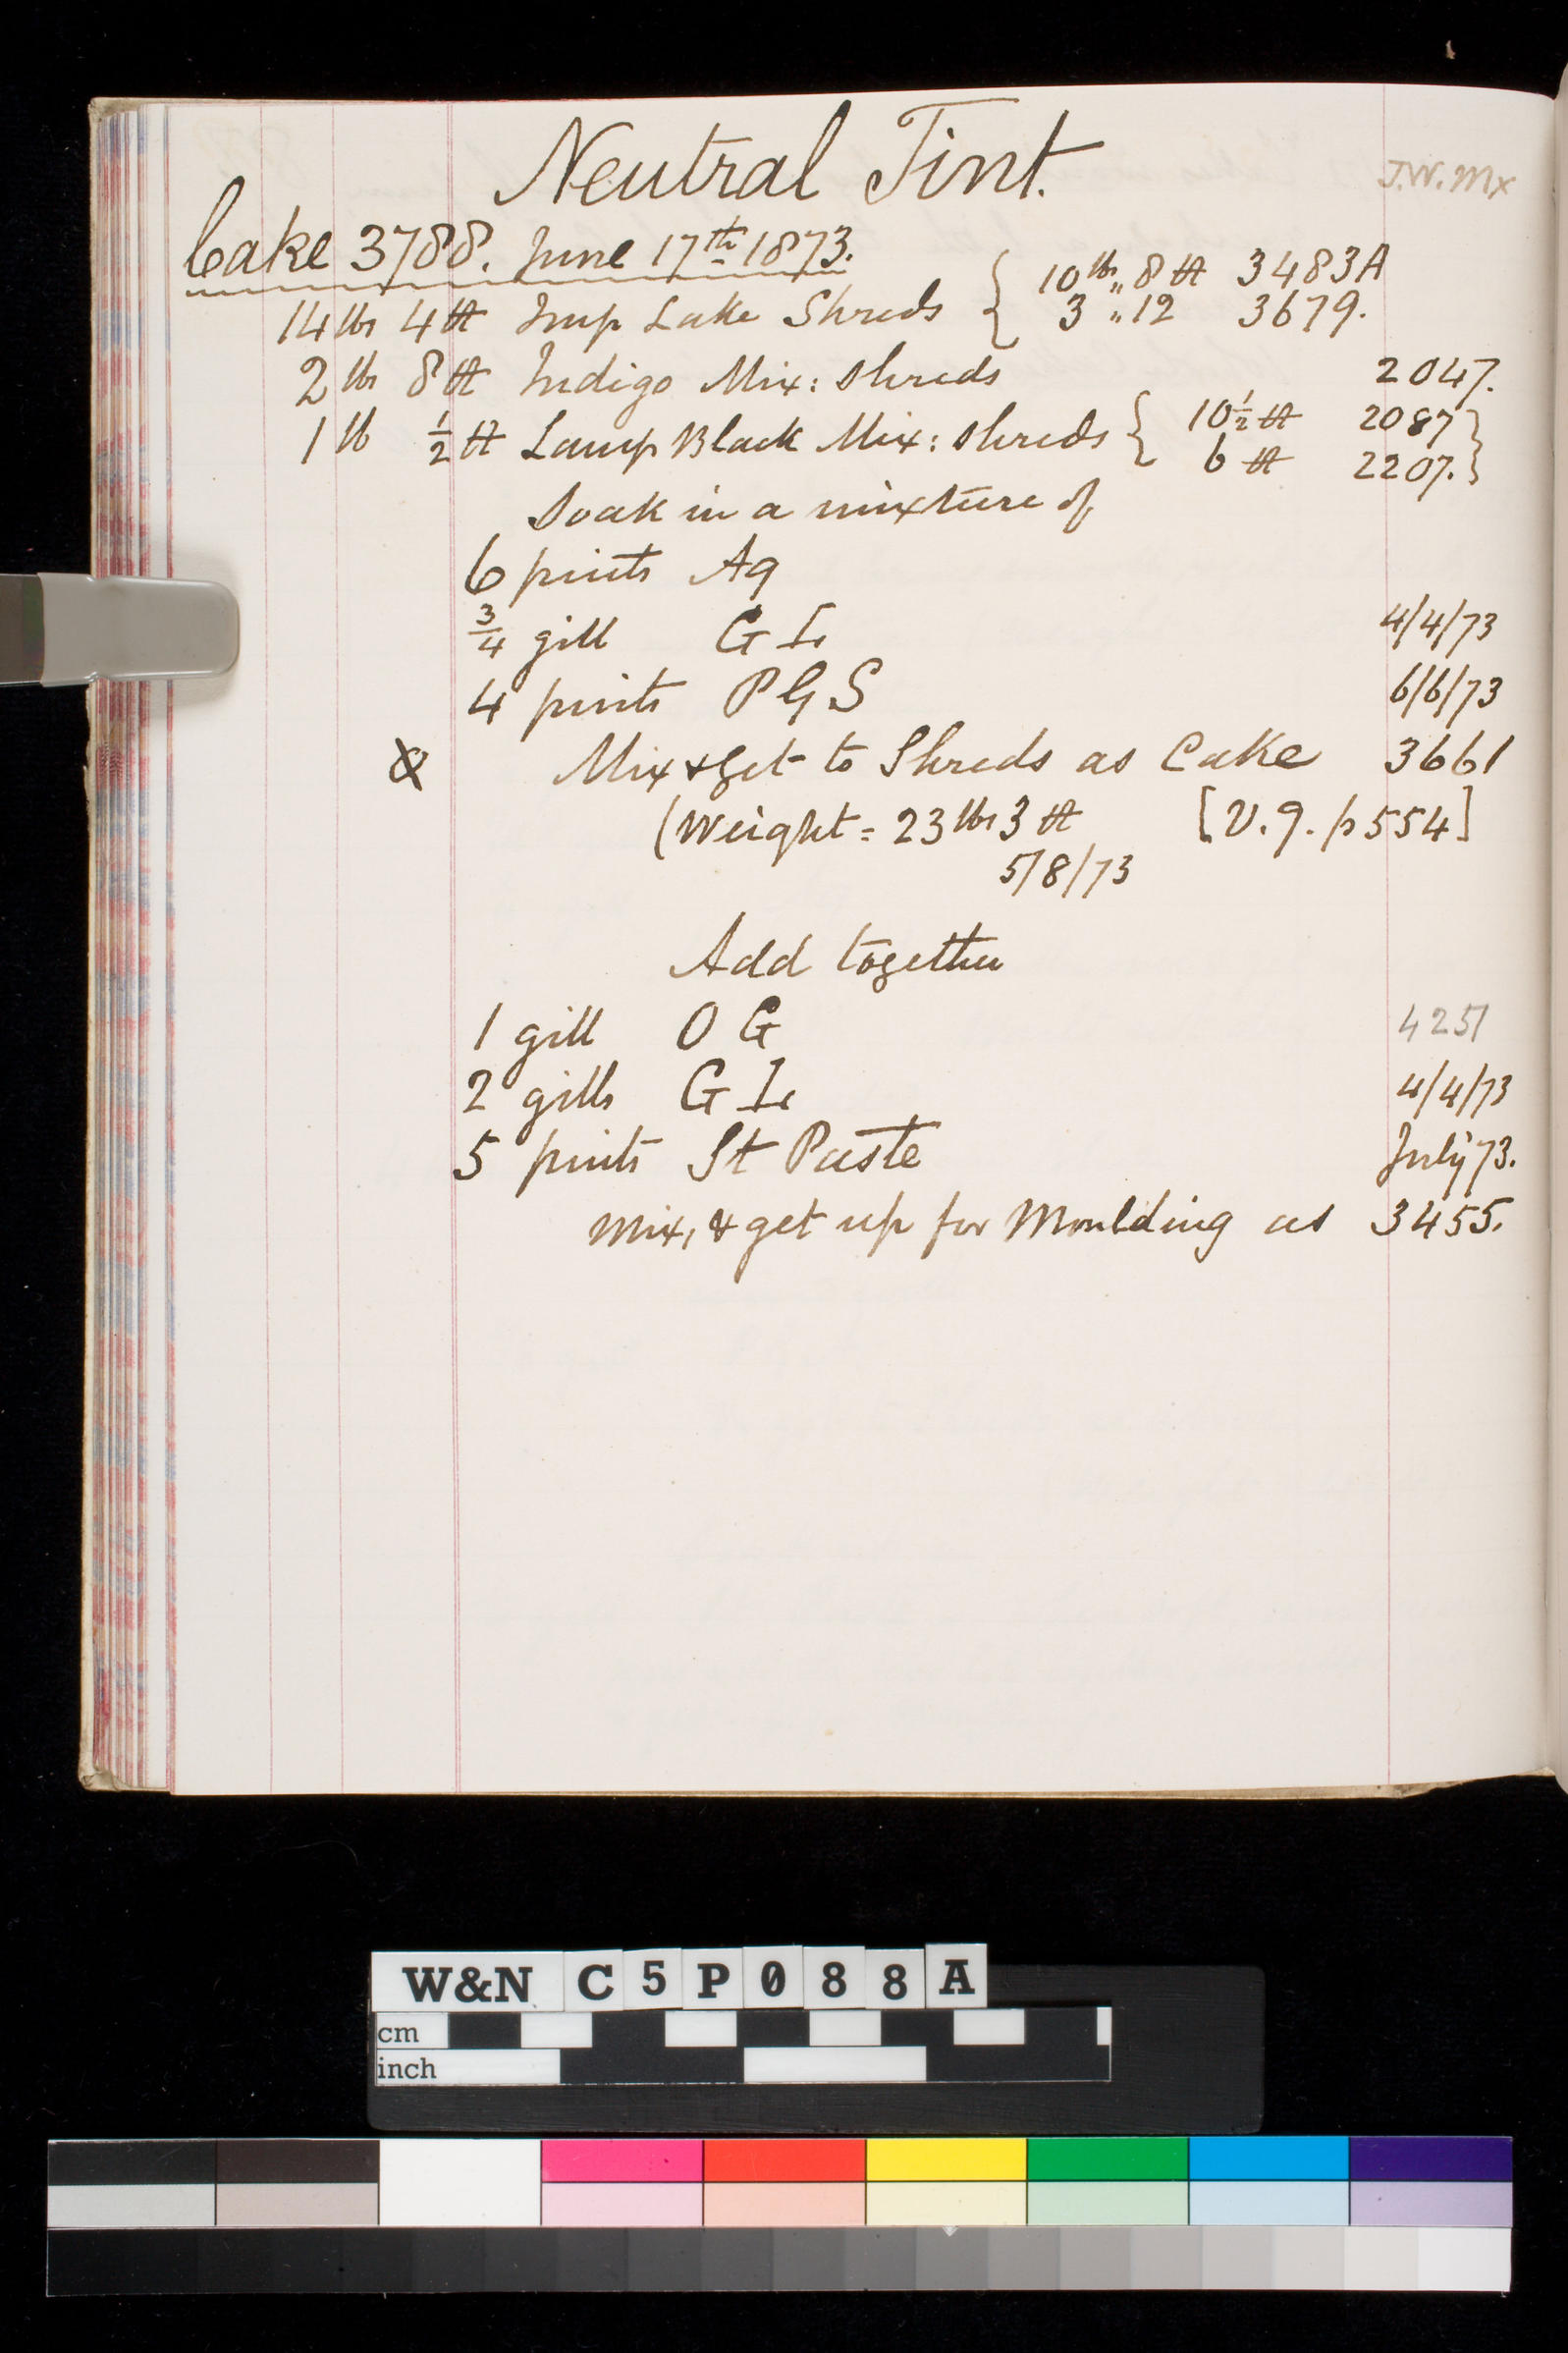 Neutral Tint.
J.W. Mx
Cake 3788. June 17th 1873.
14 lbs 4 tt Imp Lake Shreds { 10 lbs,, 8 tt 3483A
3 ,, 12 3679.
2 lbs 8 tt Indigo Mix: shreds 2047.
1 lb ½ tt Lamp Black Mix: shreds { 10½ tt 2087 }
6 tt 2207. }
Soak in a mixture of
6 pints Aq
¾ gill G L 4/4/73
4 pints P G S 6/6/73
Mix & get to Shreds as Cake 3661
(Weight = 23 lbs 3 tt [V. 9. p 554]
5/8/73
Add together
1 gill O G 4251
2 gills G L 4/4/73
5 pints St Paste July 73.
Mix, & get up for Moulding as 3455.
W&N C5P088A
cm
inch